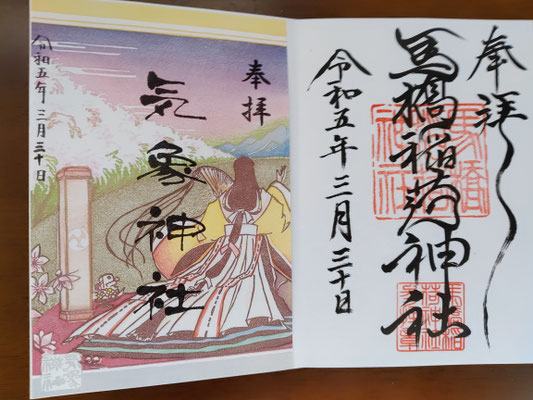 奉拝
馬橋稲荷神社
令和五年三月三十日
奉拝
気象神社
令和五年三月三十日